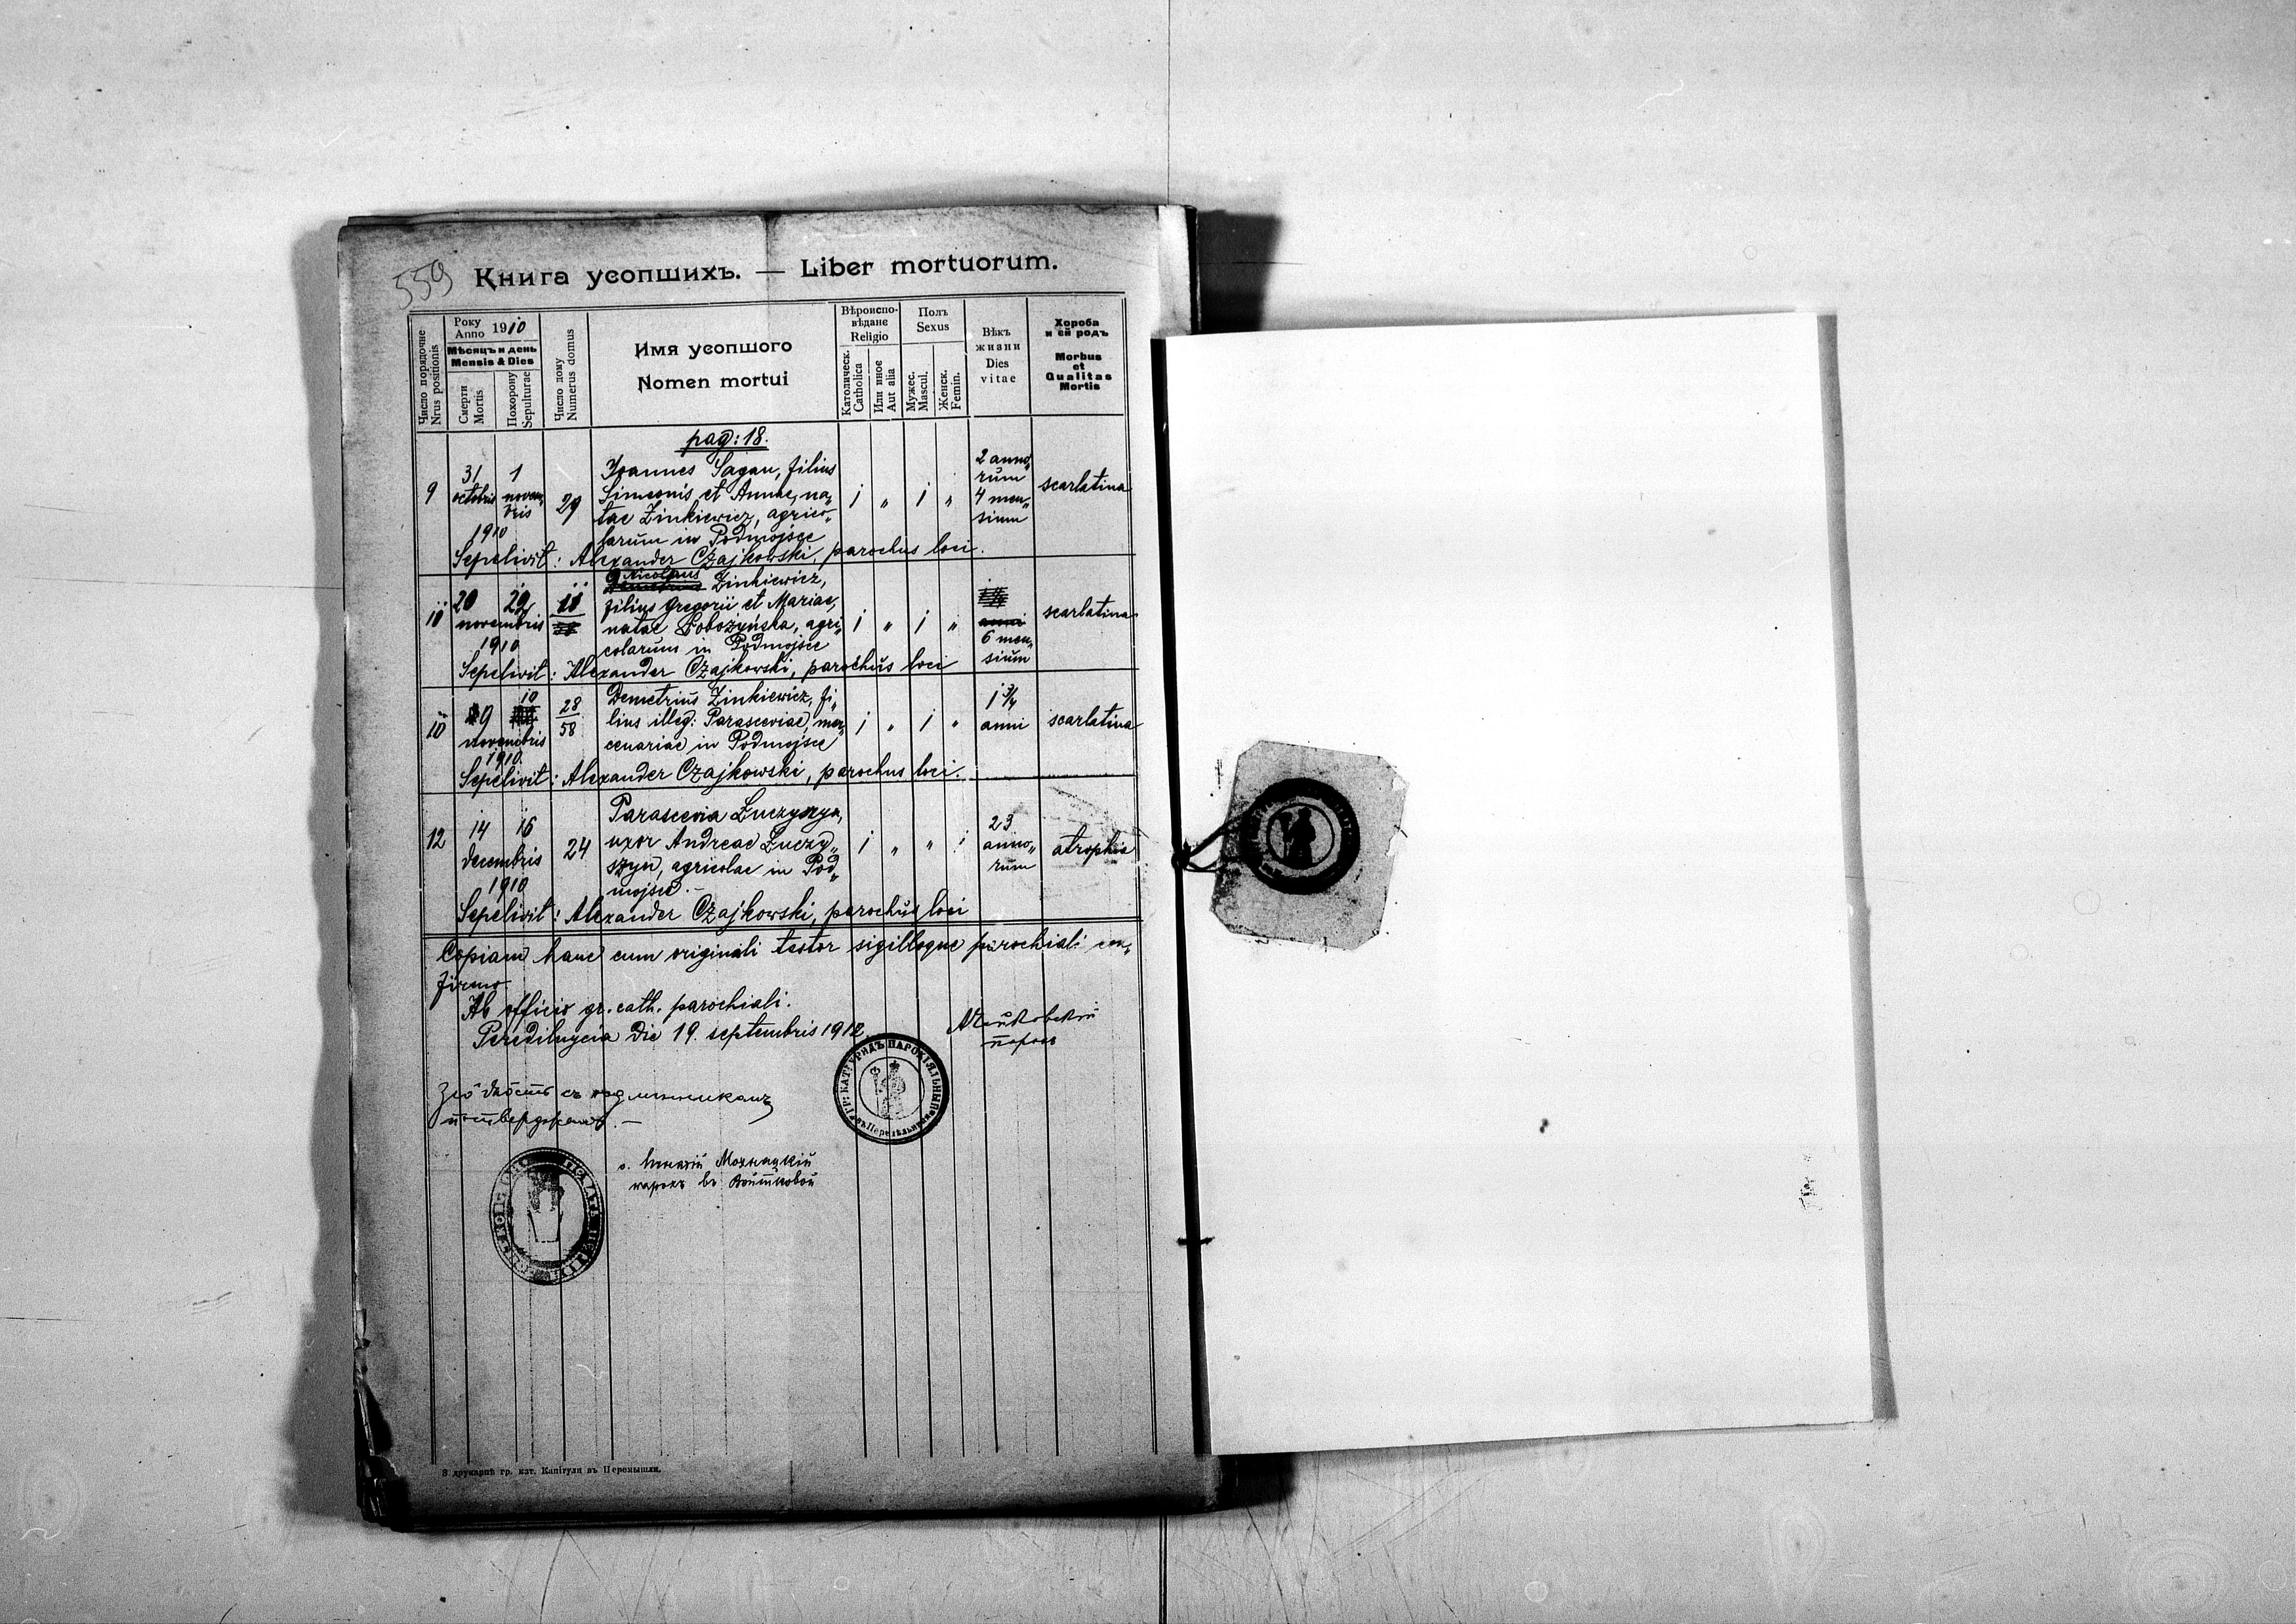 559
Книга усопшихъ. — Liber mortuorum.
Число порядочне
Nrus positionis
Року
Anno 1910
Мѣсяцъ и день
Mensis & Dies
Смерти
Mortis
Похорону
Sepulturae
Число дому
Numerus domus
Имя усопшого
Nomen mortui
Вѣроиспо-
вѣдане
Religio
Католическ.
Catholica
Или иное
Aut alia
Полъ
Sexus
Мужес.
Mascul.
Женск.
Femin.
Вѣкъ
жизни
Dies
vitae
Хороба
и ей родъ
Morbus
et
Qualitas
Mortis
pag: 18.
9 31 octobris 1 novem„ bris 1910 29
Joannes Sagan, filius
Simeonis et Annae, na„
tae Zinkiewicz, agrico„
larum in Podmojsce
1 „ 1 „
2 anno„
rum
4 men„
sium
scarlatina
Sepelivit: Alexander Czajkowski, parochus loci.
11 20 29 novembris 1910 11
Nicolaus Zinkiewicz,
filius Gregorii et Mariae,
natae Sobozyńska, agri„
colarum in Podmojsce
1 „ 1 „
6 men„
sium
scarlatina
Sepelivit: Alexander Czajkowski, parochus loci
10 9 10 novembris 1910. 28
58
Demetrius Zinkiewicz, fi„
lius illeg: Parasceviae, mer„
cenariae in Podmojsce
1 „ 1 „
1 3/4
anni
scarlatina
Sepelivit: Alexander Czajkowski, parochus loci.
12 14 16 decembris 1910 24
Parascevia Łuczyszyn,
uxor Andreae Łuczy„
szyn, agricolae in Pod„
mojsce.
1 „ „ 1
23
anno„
rum
atrophia
Sepelivit: Alexander Czajkowski, parochus loci
Copiam hanc cum originali testor sigilloque parochiali con„
firmo.
Ab officio gr. cath. parochiali.
Peredilnycia die 19. septembris 1912.
парохъ
потверджаю. —
о. Мохнацкій
парохъ въ Войтковой
ГР: КАТ: УРЯДЪ ПАРОХІЯЛЬНЫЙ
З друкарнѣ гр. кат. Капітули въ Перемышли.